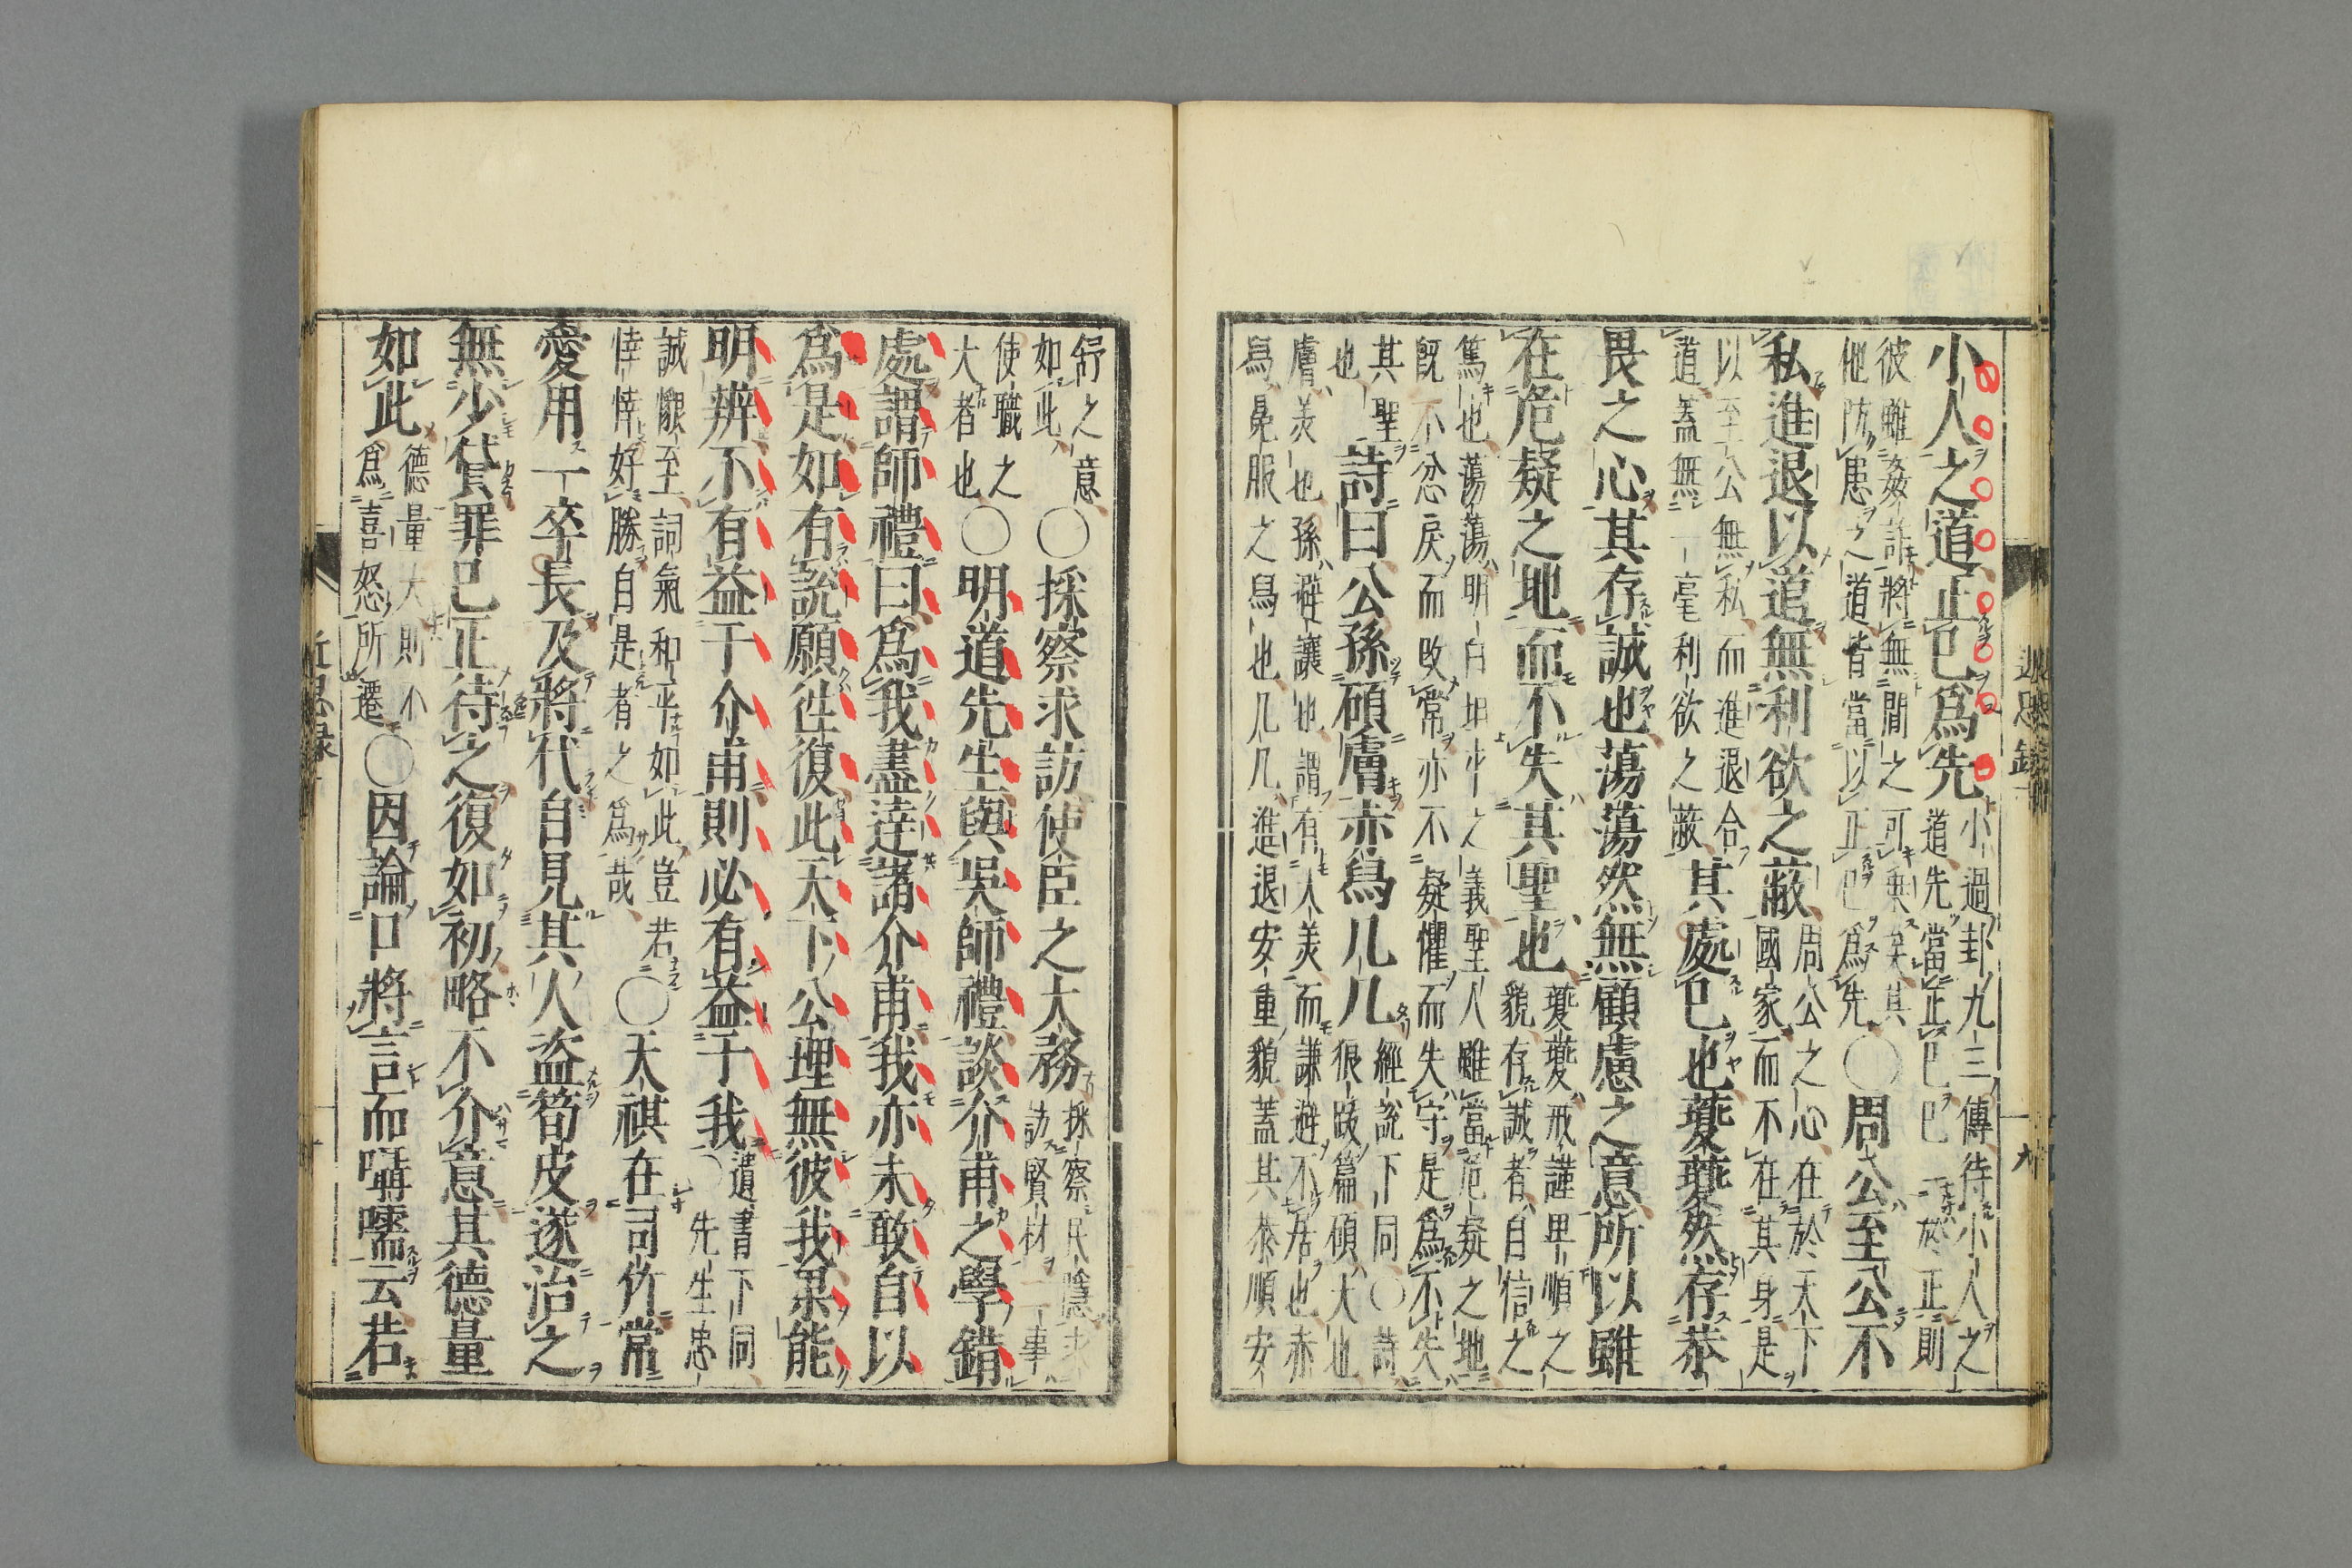 近思錄十
九
小人之道正己爲先
小過卦九三傳待小人之
道先當正己己一於正則
彼雖姦詐將無間之可乘矣其
他防患之道皆當以正己爲先
○周公至公不
私進退以道無利欲之蔽
周公之心在於天下
國家而不在其身是
以至公無私而進退合
道蓋無一毫利欲之蔽
其處己也夔夔然存恭
畏之心其存誠也蕩蕩然無顧慮之意所以雖
在危疑之地而不失其聖也
夔夔戒謹卑順之
貌存誠者自信之
篤也蕩蕩明白坦平之義聖人雖當危疑之地
既不忿戾而改常亦不疑懼而失守是爲不失
其聖
也
詩曰公孫碩膚赤舄几几
經說下同○詩
狼跋篇碩大也
膚美也孫避讓也謂有大美而謙避不居也赤
舄冕服之舄也几几進退安重貌蓋其恭順安
舒之意
如此
○採察求訪使臣之大務
採察民隱求
訪賢材一事
使職之
大者也
○明道先生與吳師禮談介甫之學錯
處謂師禮曰爲我盡達諸介甫我亦未敢自以
爲是如有說願往復此天下公理無彼我果能
明辨不有益于介甫則必有益于我
遺書下同
○先生忠
誠懇至詞氣和平如此豈若
悻悻好勝自是者之爲哉
○天祺在司竹常
愛用一卒長及將代自見其人盜筍皮遂治之
無少貸罪已正待之復如初略不介意其德量
如此
德量大則不
爲喜怒所遷
○因論口將言而囁嚅云若
近思録十